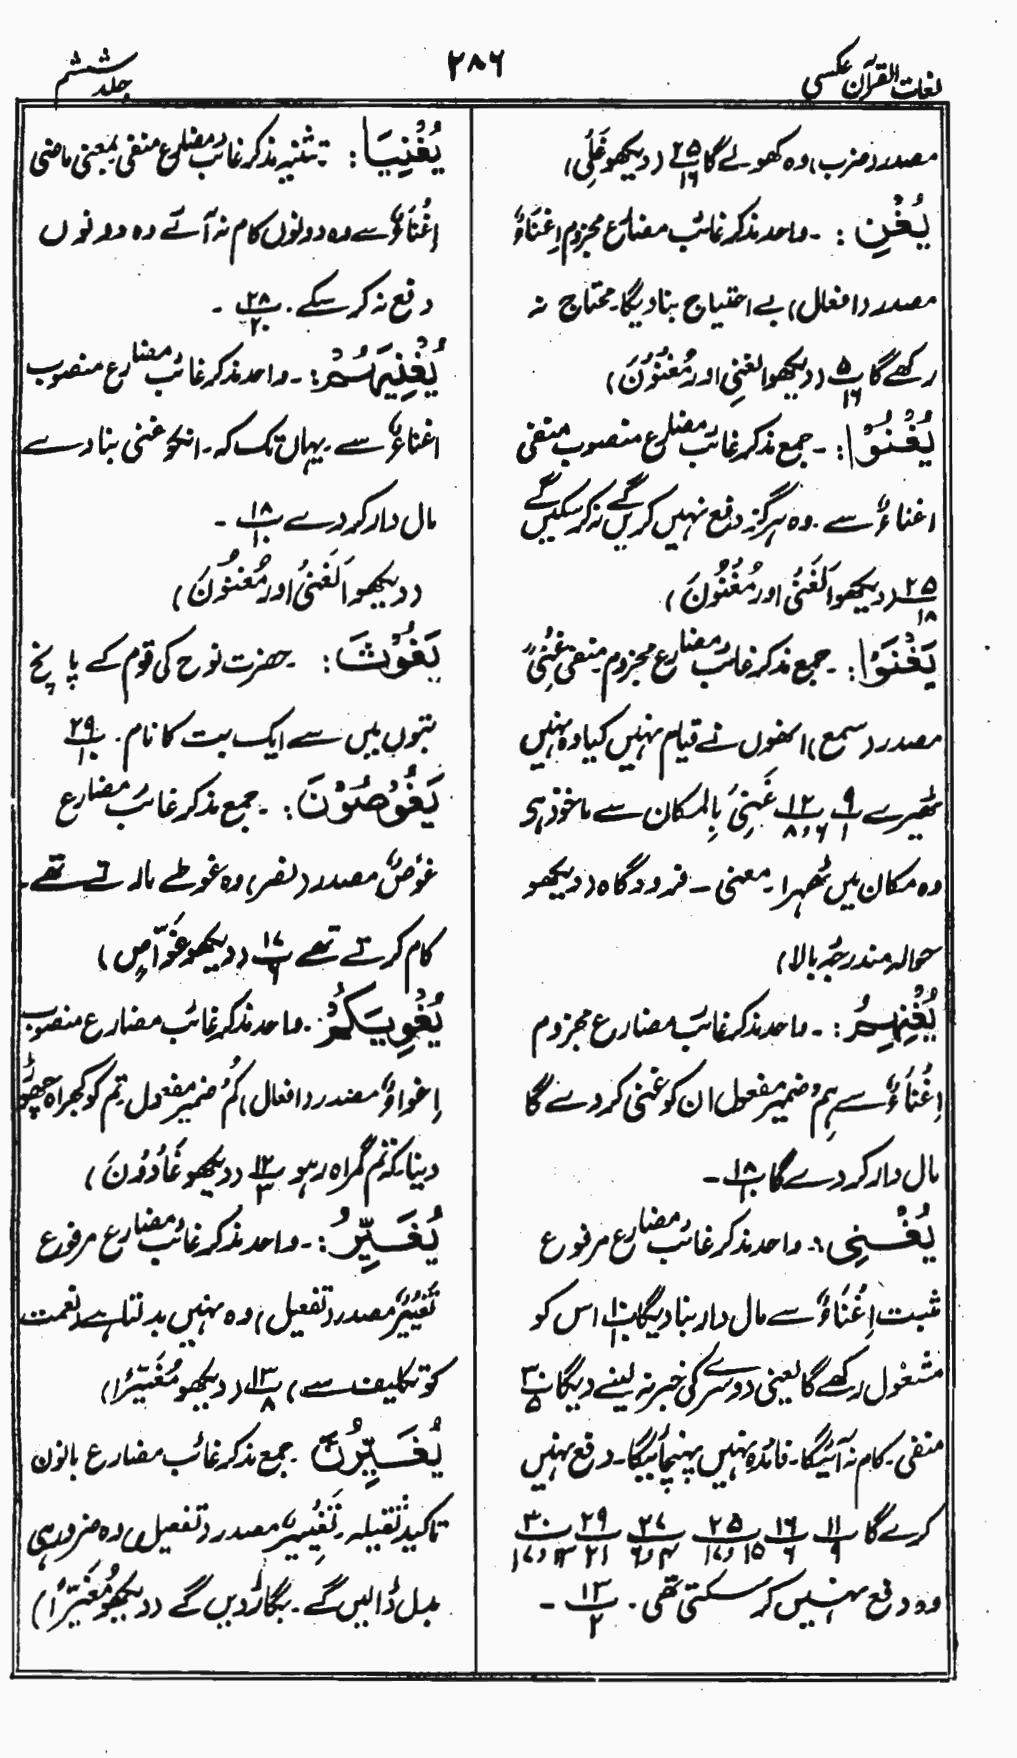 لغات القرآن عکسی
۲۸۶
جلد ششم
مصدر (ضرب) وہ کھولے گا ۲۵/۱۶ (دیکھو غَلِی)
یُغْنِ :۔ واحد مذکر غائب مضارع مجزوم اِغْنَاءٌ
مصدر (افعال) بے احتیاج بنا دیگا۔ محتاج نہ
رکھے گا ۵/۱۶ (دیکھو الغنی اور مُغْنُوْنَ)
یُغْنُوْا :۔ جمع مذکر غائب مضارع منصوب منفی
اغناءٌ سے ۔ وہ ہرگز دفع نہیں کریں گے نہ کر سکیں گے
۲۵/۱۸ (دیکھو اَلْغَنِیُّ اور مُغْنُوْنَ)
یَغْنَوْا :۔ جمع مذکر غائب مضارع مجزوم منفی غِنًی
مصدر (سمع) انھوں نے قیام نہیں کیا وہ نہیں
ٹھیرے ۹/۱ ۱۲/۸،۶ غَنِیَ بِالمکان سے ماخوذ ہی
وہ مکان میں ٹھہرا۔ معنی ۔ فرودگاہ (دیکھو
حوالہ مندرجۂ بالا)
یُغْنِهِمُ :۔ واحد مذکر غائب مضارع مجزوم
اِغْنَاءٌ سے ہِمْ ضمیر مفعول ان کو غنی کر دے گا
مال دار کر دے گا ۱۸/۱۰ ۔
یُغْنِی :۔ واحد مذکر غائب مضارع مرفوع
مثبت اِغْنَاءٌ سے مال دار بنا دیگا ۱۰/۱۰ اس کو
مشغول رکھے گا یعنی دوسرے کی خبر نہ لینے دیگا ۳۰/۵
منفی۔ کام نہ آئیگا۔ فائدہ نہیں پہنچائیگا۔ دفع نہیں
کرے گا ۱۱/۹ ۱۶/۶ ۲۵/۱۵ و ۱۷ ۲۷/۴ و ۶ ۲۹/۲۱ ۳۰/۱۳ و ۱۷
وہ دفع نہیں کر سکتی تھی ۔ ۱۳/۲ ۔
یُغْنِیَا :۔ تثنیہ مذکر غائب مضارع منفی بمعنی ماضی
اِغْنَاءٌ سے وہ دونوں کام نہ آئے وہ دونوں
دفع نہ کر سکے ۔ ۲۸/۲۰ ۔
یُغْنِیَهُمُ :۔ واحد مذکر غائب مضارع منصوب
اغناءٌ سے ۔ یہاں تک کہ ۔ انکو غنی بنا دے
مال دار کر دے ۱۸/۱۰ ۔
(دیکھو اَلْغَنِیُّ اور مُغْنُوْنَ)
یَغُوْثَ :۔ حضرت نوح کی قوم کے پانچ
بتوں میں سے ایک بت کا نام ۔ ۲۹/۱۰
یَغُوْصُوْنَ :۔ جمع مذکر غائب مضارع
غَوْصٌ مصدر (نصر) وہ غوطے مارتے تھے ۔
کام کرتے تھے ۱۷/۶ (دیکھو غَوَّاصٍ)
یُغْوِیَکُمْ :۔ واحد مذکر غائب مضارع منصوب
اِغواءٌ مصدر (افعال) کُمْ ضمیر مفعول۔ تم کو گمراہ چھوڑ
دینا۔ کہ تم گمراہ رہو ۱۲/۳ (دیکھو غَاوُوْنَ)
یُغَیِّرُ :۔ واحد مذکر غائب مضارع مرفوع
تَغْیِیْرٌ مصدر (تفعیل) وہ نہیں بدلتا ہے (نعمت
کو تکلیف سے) ۱۳/۸ (دیکھو مُغَیِّرًا)
یُغَیِّرُنَّ ۔ جمع مذکر غائب مضارع بانون
تاکید ثقیلہ۔ تَغْیِیرٌ مصدر (تفعیل) وہ ضرور ہی
بدل ڈالیں گے۔ بگاڑ دیں گے (دیکھو مُغَیِّرًا)